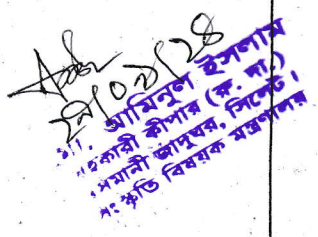 ২৭/০৮/২৪
মো. আমিনুল ইসলাম
সহকারী কীপার (রু. দা.)
ওসমানী জাদুঘর, সিলেট।
সংস্কৃতি বিষয়ক মন্ত্রণালয়